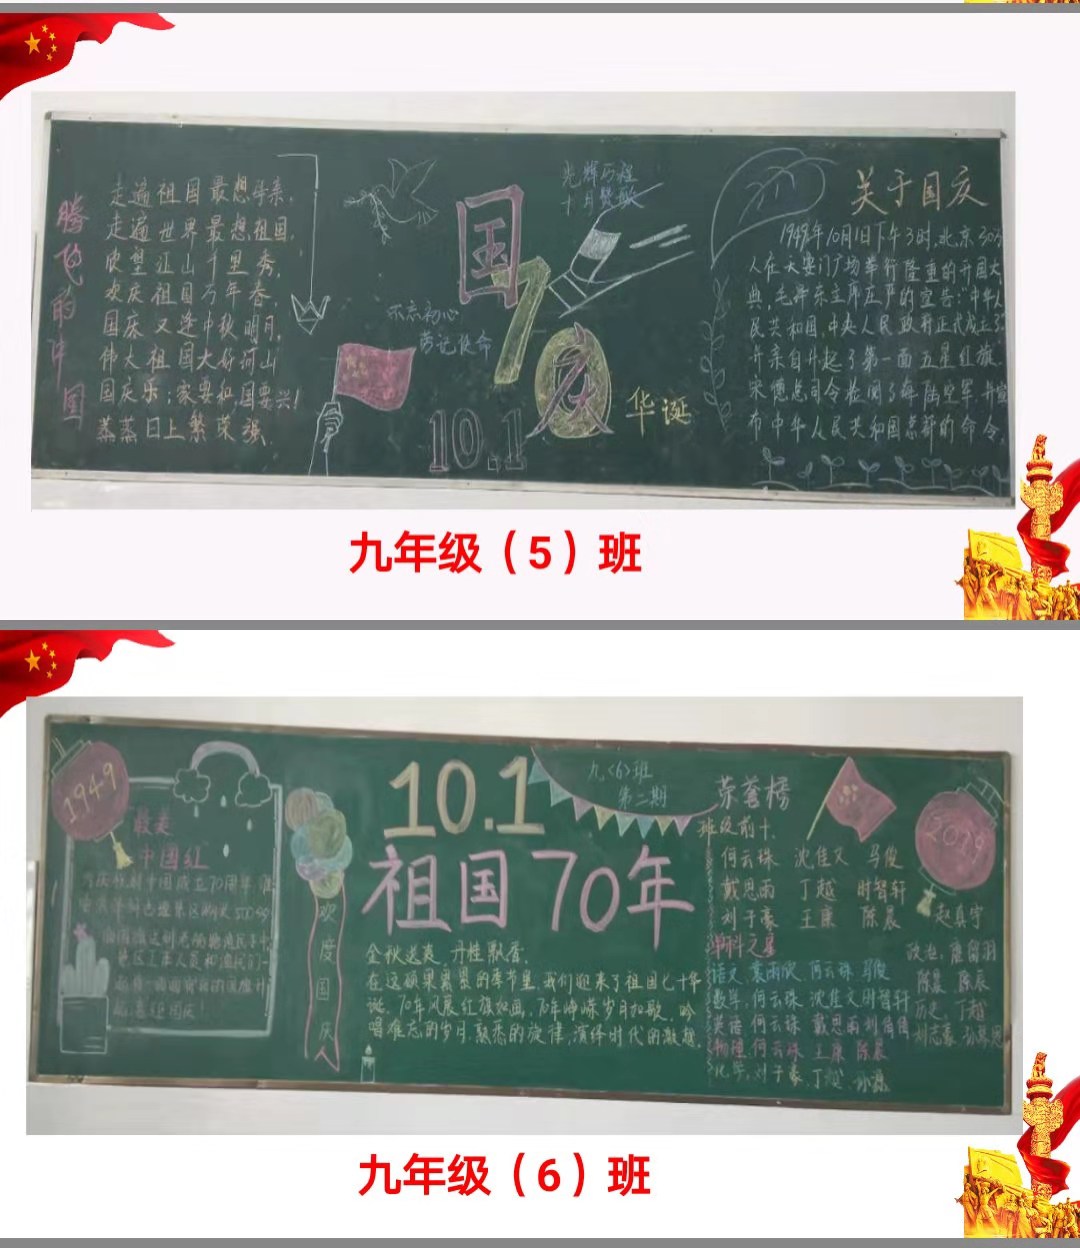 腾飞的中国
走遍祖国最想母亲,
走遍世界最想祖国,
欣望江山千里秀,
欢庆祖国万年春,
国庆又逢中秋明月,
伟大祖国大好河山
国庆乐;家要和,国要兴!
蒸蒸日上繁荣强.
光辉历程
十月赞歌
国
70
庆
华诞
不忘初心
牢记使命
10.1
关于国庆
1949年10月1日下午3时,北京30万
人在天安门广场举行隆重的开国大
典,毛泽东主席庄严的宣告:中华人
民共和国,中央人民政府正式成立了
并亲自升起了第一面五星红旗
朱德总司令检阅了海陆空军并宣
布中华人民共和国总部的命令,
九年级（5）班
1949
最美
中国红
10.1
祖国70年
欢度国庆
金秋送爽,丹桂飘香.
在这硕果累累的季节里,我们迎来了祖国七十华
诞,70年风展红旗如画,70年峥嵘岁月如歌,吟
唱难忘的岁月,熟悉的旋律,演绎时代的激越.
九<6>班
第二期
荣誉榜
班级前十.
何云珠 沈佳文 马俊
戴思雨 丁越 时智轩
刘子豪 王康 陈晨 赵真宇
2019
学科之星
语文, 何云珠 马俊
数学, 何云珠 沈佳文 时智轩
英语 何云珠 戴思雨
物理 何云珠 王康 陈晨
化学, 刘子豪 丁越
政治,
陈晨 陈辰
历史, 丁越
刘志豪
九年级（6）班